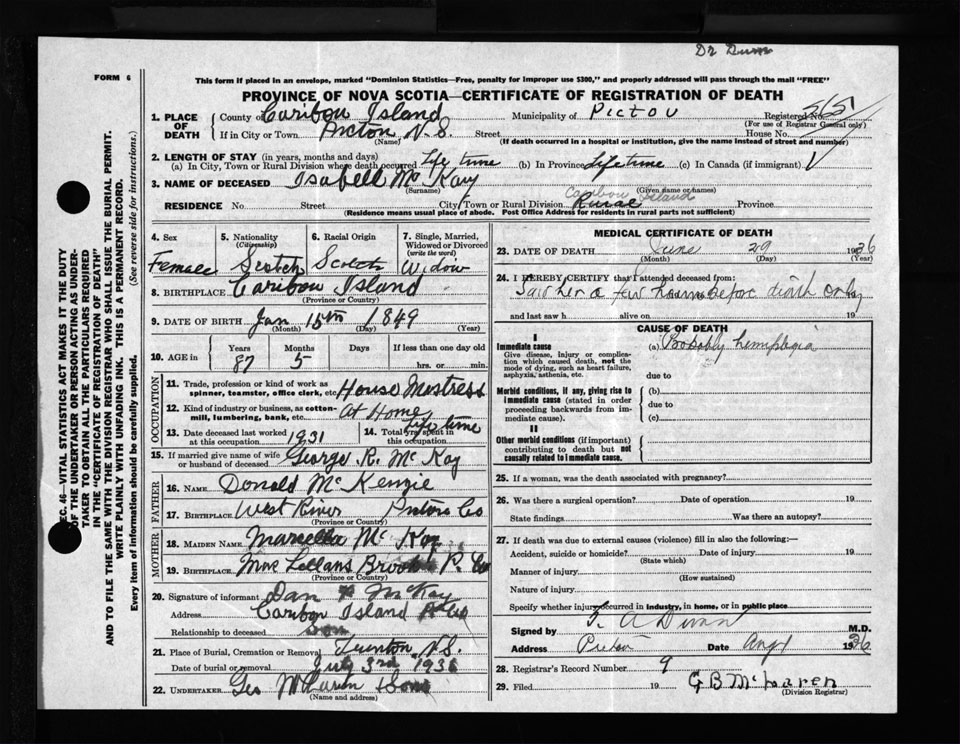 Dr Dunn
FORM 6
This form if placed in an envelope, marked "Dominion Statistics—Free, penalty for improper use $300," and properly addressed will pass through the mail "FREE"
PROVINCE OF NOVA SCOTIA—CERTIFICATE OF REGISTRATION OF DEATH
1. PLACE OF DEATH
County of Caribou Island Municipality of Pictou Registered No.
(For use of Registrar General only)
If in City or Town Pictou N.S. Street House No.
(Name) (If death occurred in a hospital or institution, give the name instead of street and number)
2. LENGTH OF STAY (in years, months and days)
(a) In City, Town or Rural Division where death occurred Life time (b) In Province Lifetime (c) In Canada (if immigrant)
3. NAME OF DECEASED Isabell McKay
(Surname) (Given name or names)
Caribou Island
RESIDENCE No. Street City/Town or Rural Division Rural Province
(Residence means usual place of abode. Post Office Address for residents in rural parts not sufficient)
4. Sex Female
5. Nationality (Citizenship) Scotch
6. Racial Origin Scotch
7. Single, Married, Widowed or Divorced (write the word) Widow
8. BIRTHPLACE Caribou Island
(Province or Country)
9. DATE OF BIRTH Jan 15th 1849
(Month) (Day) (Year)
10. AGE in Years 87 Months 5 Days If less than one day old hrs. or min.
OCCUPATION
11. Trade, profession or kind of work as spinner, teamster, office clerk, etc. House Mistress
12. Kind of industry or business, as cotton-mill, lumbering, bank, etc. At Home
13. Date deceased last worked at this occupation. 1931
14. Total yrs. spent in this occupation. Life time
15. If married give name of wife or husband of deceased George R. McKay
FATHER
16. NAME Donald McKenzie
17. BIRTHPLACE West River Pictou Co
(Province or Country)
MOTHER
18. MAIDEN NAME Marcella McKay
19. BIRTHPLACE Mac Lellans Brook P. Co
(Province or Country)
20. Signature of informant Dan McKay
Address Caribou Island
Relationship to deceased Son
21. Place of Burial, Cremation or Removal N.S.
Date of burial or removal July 3rd 1936
22. UNDERTAKER Geo & Sons
(Name and address)
MEDICAL CERTIFICATE OF DEATH
23. DATE OF DEATH June 29 1936
(Month) (Day) (Year)
24. I HEREBY CERTIFY that I attended deceased from:
Saw her a few hours before death only
and last saw h alive on 19
CAUSE OF DEATH
I
Immediate cause (a) Probably hemiplegia
Give disease, injury or complication which caused death, not the mode of dying, such as heart failure, asphyxia, asthenia, etc.
due to
Morbid conditions, if any, giving rise to immediate cause (stated in order proceeding backwards from immediate cause).
(b)
due to
(c)
II
Other morbid conditions (if important) contributing to death but not causally related to immediate cause.
25. If a woman, was the death associated with pregnancy?
26. Was there a surgical operation? Date of operation 19
State findings Was there an autopsy?
27. If death was due to external causes (violence) fill in also the following:—
Accident, suicide or homicide? Date of injury 19
(State which)
Manner of injury
(How sustained)
Nature of injury
Specify whether injury occurred in industry, in home, or in public place
Signed by A Dunn M.D.
Address Pictou Date Aug 1 1936
28. Registrar's Record Number 9
29. Filed 19 G B McLaren
(Division Registrar)
SEC. 46—VITAL STATISTICS ACT MAKES IT THE DUTY
OF THE UNDERTAKER OR PERSON ACTING AS UNDERTAKER TO OBTAIN ALL THE PARTICULARS REQUIRED
IN THE "CERTIFICATE OF REGISTRATION OF DEATH"
AND TO FILE THE SAME WITH THE DIVISION REGISTRAR WHO SHALL ISSUE THE BURIAL PERMIT.
WRITE PLAINLY WITH UNFADING INK. THIS IS A PERMANENT RECORD.
Every item of information should be carefully supplied. (See reverse side for instructions.)